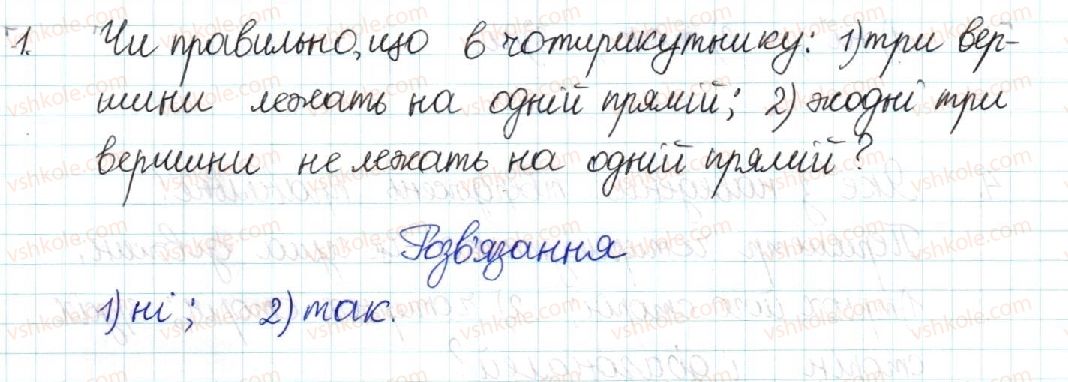 1. Чи правильно, що в чотирикутнику: 1) три вер-
шини лежать на одній прямій; 2) жодні три
вершини не лежать на одній прямій?
Розв'язання
1) ні; 2) так.